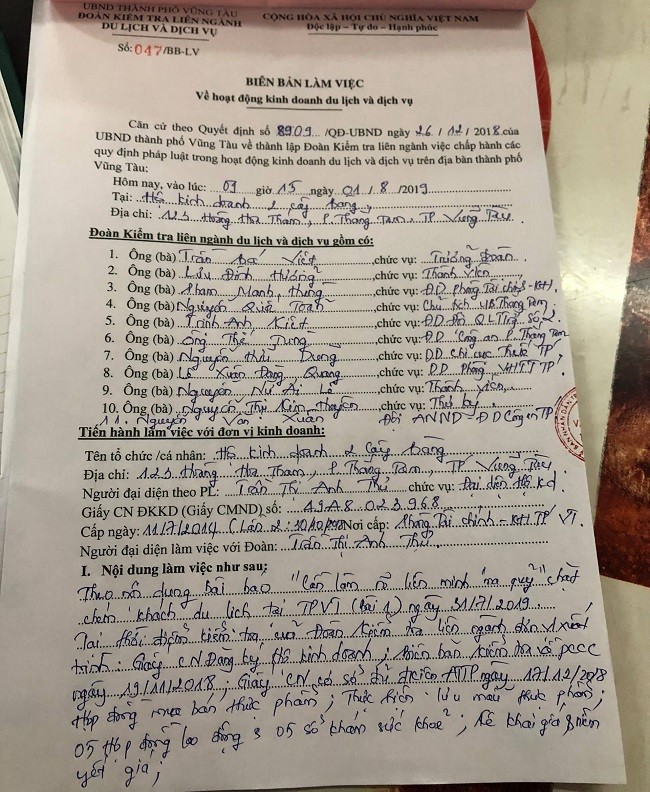 UBND THÀNH PHỐ VŨNG TÀU
ĐOÀN KIỂM TRA LIÊN NGÀNH
DU LỊCH VÀ DỊCH VỤ
Số: 047/BB-LV
CỘNG HÒA XÃ HỘI CHỦ NGHĨA VIỆT NAM
Độc lập – Tự do – Hạnh phúc
BIÊN BẢN LÀM VIỆC
Về hoạt động kinh doanh du lịch và dịch vụ
Căn cứ theo Quyết định số 8909 /QĐ-UBND ngày 26 / 12 / 2018 của
UBND thành phố Vũng Tàu về thành lập Đoàn Kiểm tra liên ngành việc chấp hành các
quy định pháp luật trong hoạt động kinh doanh du lịch và dịch vụ trên địa bàn thành phố
Vũng Tàu:
Hôm nay, vào lúc: 09 giờ 15 ngày 01 / 8 /2019
Tại: Hộ kinh doanh 2 cây bàng
Địa chỉ: 123 Hoàng Hoa Thám, P. Thắng Tam, TP Vũng Tàu
Đoàn Kiểm tra liên ngành du lịch và dịch vụ gồm có:
1. Ông (bà) Trần Bá Việt, chức vụ: Trưởng Đoàn
2. Ông (bà) Lưu Đình Hướng, chức vụ: Thành viên
3. Ông (bà) Phạm Mạnh Hùng, chức vụ: ĐD phòng Tài chính-KH
4. Ông (bà) Nguyễn Toàn, chức vụ: Chủ tịch Thắng Tam
5. Ông (bà) Trịnh Anh Kiệt, chức vụ: ĐD Đội QLTT số 2
6. Ông (bà) Ông Thế Dũng, chức vụ: ĐD Công an P. Thắng Tam
7. Ông (bà) Nguyễn Hữu Dương, chức vụ: ĐD chi cục Thuế TP
8. Ông (bà) Lê Xuân Đăng Quang, chức vụ: ĐD Phòng VHTT TP
9. Ông (bà) Nguyễn Nữ Ái Lê, chức vụ: Thành viên
10. Ông (bà) Nguyễn Thị Kim Huyền, chức vụ: Thư ký
11. Nguyễn Văn Xuân Đội ANND - ĐD Công an TP
Tiến hành làm việc với đơn vị kinh doanh:
Tên tổ chức /cá nhân: Hộ kinh doanh 2 Cây Bàng
Địa chỉ: 123 Hoàng Hoa Thám, P. Thắng Tam, TP Vũng Tàu
Người đại diện theo PL: Trần Thị Anh Thư chức vụ: Đại diện Hộ kd
Giấy CN ĐKKD (Giấy CMND) số: 49A8023968
Cấp ngày: 11/7/2014 (Lần 2: Nơi cấp: Phòng Tài chính - KH TP VT
Người đại diện làm việc với Đoàn: Trần Thị Anh Thư
I. Nội dung làm việc như sau:
Theo nội dung bài báo "Cần làm rõ liên minh "ma quỷ" chặt
chém khách du lịch tại TPVT (bài 1) ngày 31/7/2019.
Tại thời điểm kiểm tra của Đoàn kiểm tra liên ngành đơn vị xuất
trình: Giấy CN Đăng ký Hộ kinh doanh; biên bản kiểm tra về PCCC
ngày 19/11/2018; Giấy CN cơ sở đủ đk iên ATTP ngày 17/12/2018
Hợp đồng mua bán thực phẩm; Thực hiện lưu mẫu thực phẩm;
05 Hợp đồng lao động & 05 sổ khám sức khỏe; kê khai giá, niêm
yết giá;